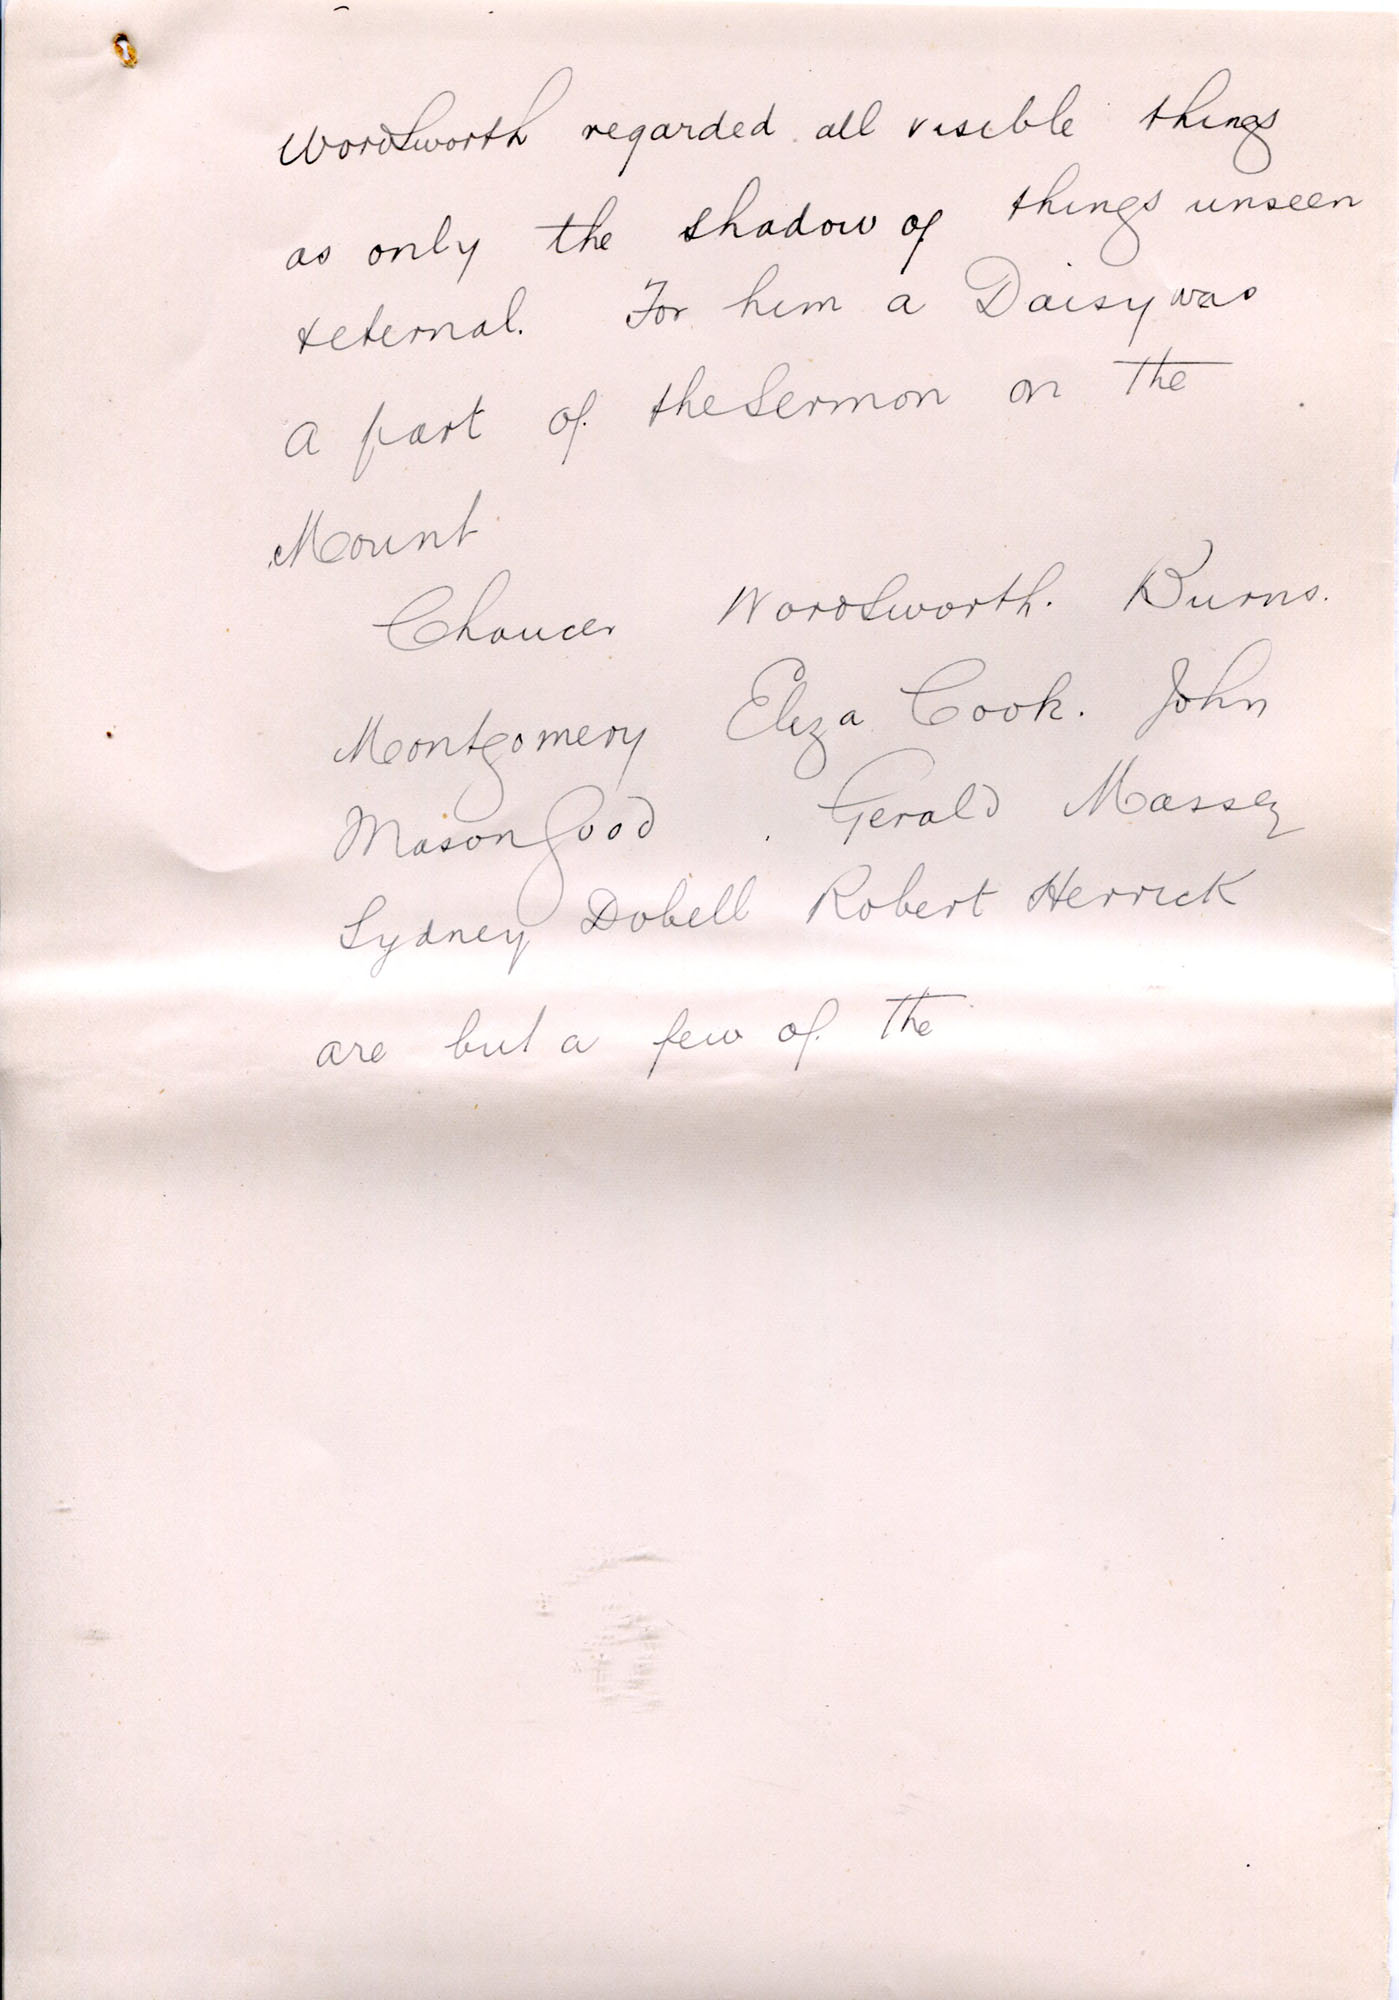 Wordsworth regarded all visible things
as only the shadow of things unseen
& eternal. For him a Daisy was
a part of the Sermon on the
Mount
Chaucer Wordsworth. Burns.
Montgomery Eliza Cook. John
Mason Good. Gerald Massey
Sydney Dobell Robert Herrick
are but a few of the